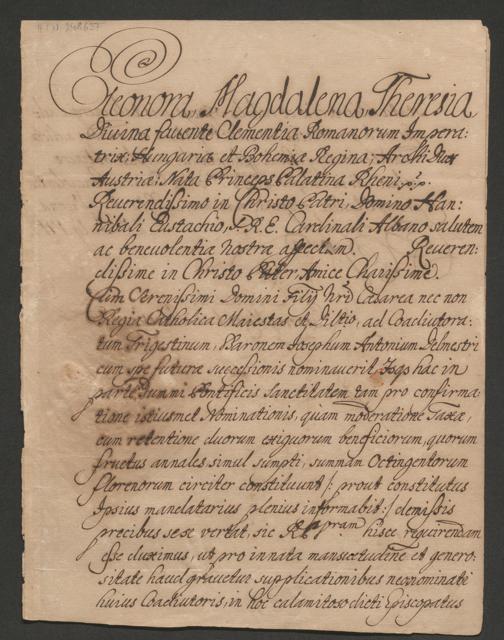 Eleonora, Magdalena, Theresia
Divina favente Clementia Romanorum Impera:
trix; Hungariæ et Bohemiæ Regina; Archi Dux
Austriæ; Nata Princeps Palatina Rheni p.p.
Reverendissimo in Christo Patri, Domino Han:
nibali Eustachio, S.R.E. Cardinali Albano salutem
ac benevolentiæ nostræ affectum. Reveren:
dissime in Christo Pater, Amice Charissime.
Cum Serenissimi Domini Filij Nrĩ Cæsarea nec non
Regia Catholica Maiestas et Diltio, ad Coadiutora:
tum Trigestinum, Baronem Josephum Antonium Delmestri
cum spe futuræ successionis nominaverit Isqs hac in
parte Summi Pontificis Sanctitatem tam pro confirma:
tione istiusmet Nominationis, quam moderatione Taxæ,
cum retentione duorum exiguorum beneficiorum, quorum
fructus annales simul sumpti, summam Octingentorum
florenorum circiter constituunt /: prout constitutus
Ipsius mandatarius plenius informabit :/ demissis
precibus sese vertat, sic Rm̃ pram̃ hisce requirendam
esse duximus, ut pro innata mansuetudine et genero:
sitate haud gravetur supplicationibus neonominati
huius Coadiutoris, in hoc calamitoso dicti Episcopatus